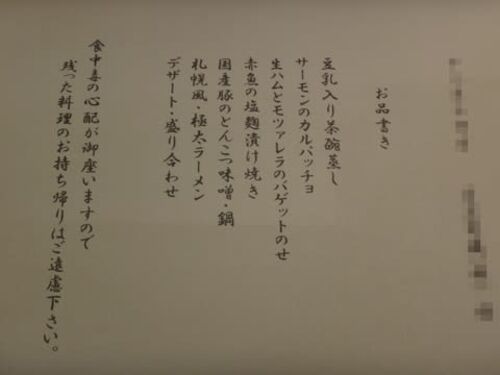 お品書き
豆乳入り茶碗蒸し
サーモンのカルパッチョ
生ハムとモツァレラのバゲットのせ
赤魚の塩麹漬け焼き
国産豚のとんこつ味噌・鍋
札幌風・極太ラーメン
デザート・盛り合わせ
食中毒の心配が御座いますので
残った料理のお持ち帰りはご遠慮下さい。